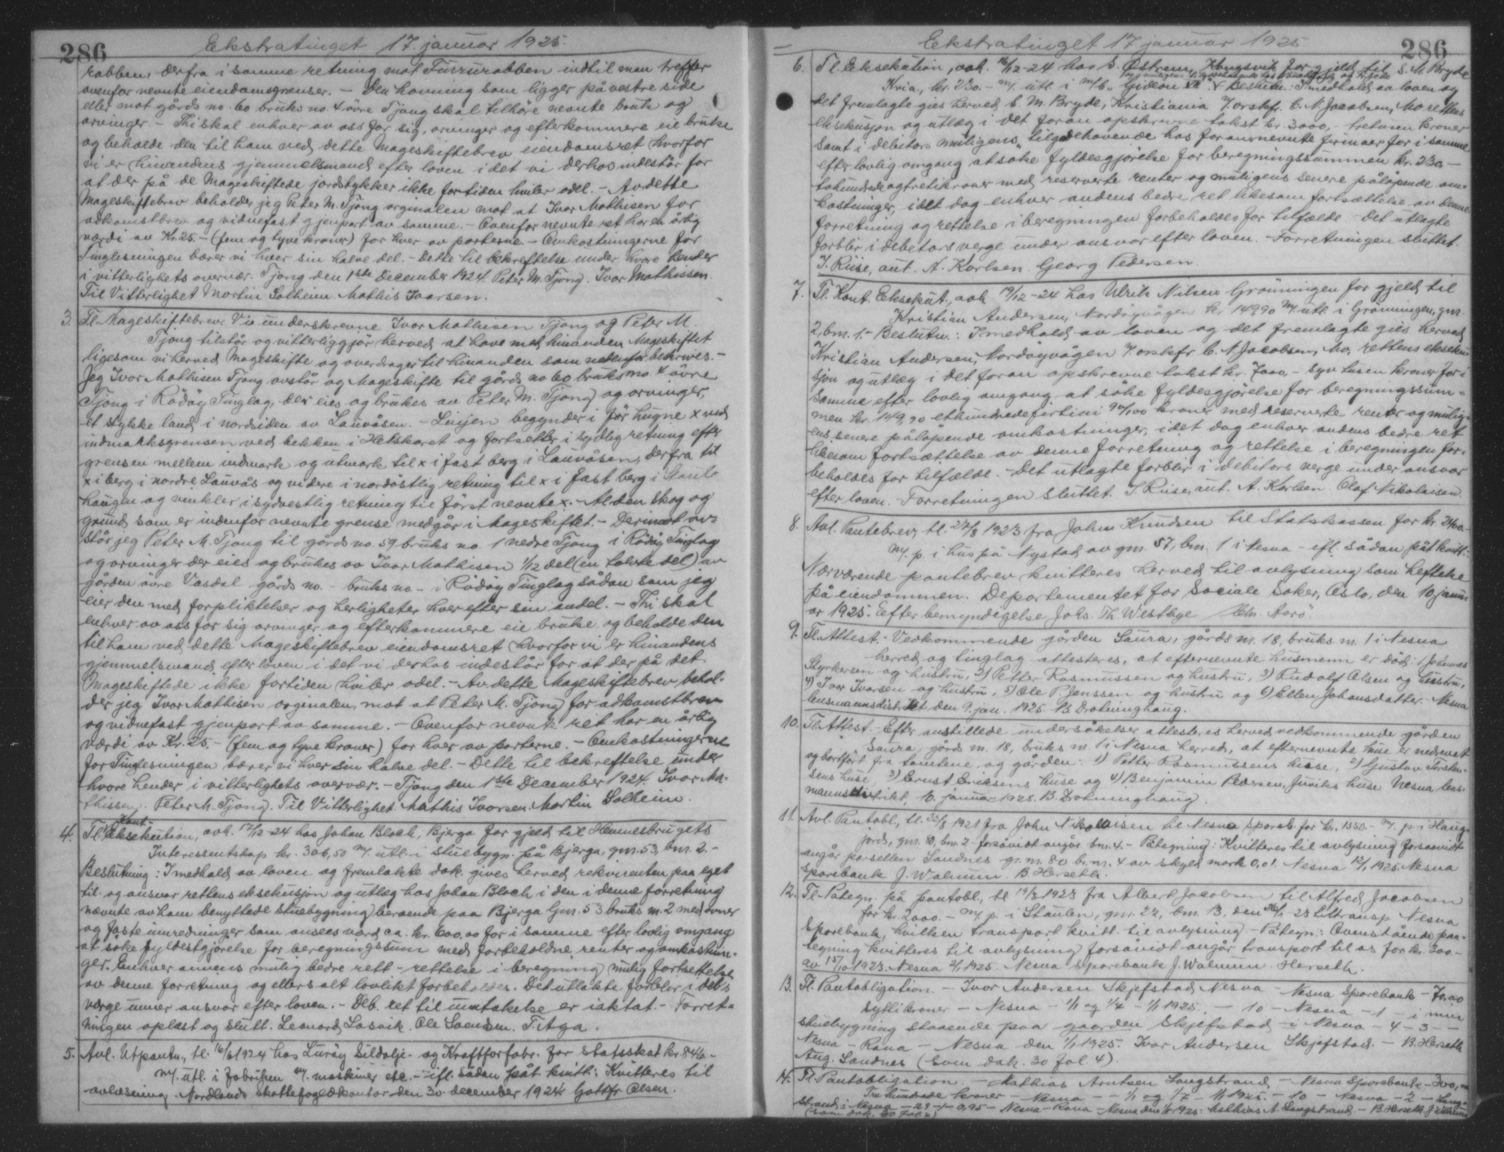 286
Ekstratinget 17. januar 1925.
rabben, derfra i samme retning mot Furrurabben indtil man treffer
ovenfor nevnte eiendomsgrenser. - Den havning som ligger på vestre side
elv mot gårds no. 60 bruks no 4 øvre Tjong skal tilhøre nevnte bruk og
arvinger. - Thi skal enhver av oss for sig, arvinger og efterkommere eie bruke
og beholde den til ham ved dette Mageskiftebrev eiendomsret hvorfor
vi er hinandens hjemmelsmand efter loven idet vi derhos indestår for
at der på de Mageskiftede jordstykker ikke fortiden hviler odel. - Av dette
Mageskiftebrev beholder jeg Peter M. Tjong orginalen mot at Ivar Mathisen for
adkomstbrev og vidnefast gjenpart av samme. - Ovenfor nevnte ret har en årlig
værdi av Kr. 25.- (fem og tyve kroner) for hver av parterne. - Omkostningerne for
Tinglesningen bærer vi hver sin halve del. - Dette til bekreftelse under hvore hender
i vitterlighets overvær. Tjong den 1ste december 1924. Peter M. Tjong. Ivar Mathissen.
Til Vitterlighet Martin Solheim Mathis Ivarsen.
3. Tl. Mageskiftebrev. Vi underskrevne Ivar Mathisen Tjong og Peter M.
Tjong tilstår og vitterliggjør herved at have med hinanden Mageskiftet
ligesom vi herved Mageskifte og overdrager til hinanden som nedenfor beskrives. -
Jeg Ivar Mathisen Tjong avstår og Mageskifte til gårds no 60 bruks no 4 øvre
Tjong i Rødøy Tinglag, der eies og brukes av Peter M. Tjong og arvinger,
et stykke land i nordsiden av Lauvåsen. - Linjen begynder i før hugne x ved
indmarksgrensen ved bekken i Hetskaret og fortsetter i sydlig retning efter
grensen mellem indmark og utmark til x i fast berg i Lauvåsen, derfra til
x i berg i nordre Lauvås og videre i nordøstlig retning til x i fast berg i
haugen og vinkler i sydvestlig retning til først nevnte x. - Al den skog og
grund som er indenfor nevnte grense medgår i Mageskiftet. - Derimot av-
står jeg Peter M. Tjong til gårds no. 59 bruks no. 1 nedre Tjong i Rødøy Tinglag
og arvinger der eies og brukes av Ivar Mathisen 1/12 del (en tolvte del) av
gården øvre Vasdal gårds no. - bruks no. - i Rødøy Tinglag sådan som jeg
eier den med forpliktelser og herligheter hver efter sin andel. - Thi skal
enhver av oss for sig arvinger og efterkommere eie bruke og beholde den
til ham ved dette Mageskiftebrev eiendomsret hvorfor vi er hinandens
hjemmelsmand efter loven i det vi derhos indestår for at der på det
Mageskiftede ikke fortiden hviler odel. - Av dette Mageskiftebrev behol-
der jeg Ivar Mathisen orginalen, mot at Peter M. Tjong for adkomstbrev
og vidnefast gjenpart av samme. - Ovenfor nevnte ret har en årlig
værdi av Kr. 25.- (fem og tyve kroner) for hver av parterne. - Omkostningerne
for Tinglesningen bærer vi hver sin halve del. - Dette til bekreftelse under
hvore hender i vitterlighets overvær. - Tjong den 1ste December 1924. Ivar Ma-
thissen. Peter M. Tjong. Til Vitterlighet Mathis Ivarsen. Martin Solheim.
4. Tl. Kont. Eksekution, avh. 17/12-24 hos Johan Bloch, Bjerga for gjeld til Hemnesbrugets
Interessentskap kr. 306,50 m/. utl. i stuebygn. på Bjerga, gn. 53, bn. 2. -
Beslutning: I medhold av loven og fremlakte dok. gives herved rekvirenten paa eget
til- og ansvar rettens eksekusjon og utleg hos Johan Bloch i den i denne forretning
nævnte av ham benyttede stuebygning beroende paa Bjerga Gnr. 53 bruks nr. 2 med ovner
og faste innredninger som ansees værd ca. kr. 600,00 for i samme efter lovlig omgang
at søke fyldestgjørelse for beregningssum med forbeholdne renter og omkostnin-
ger. Enhver annens mulig bedre rett - rettelse i beregning mulig fortsettelse
av denne forretning og ellers alt lovlikt forbeholdes. Det utlakte forblir i deb's
værge unner ansvar efter loven. - Deb. ret til unntakelse er iaktat. - Forret-
ningen oplest og slutt. Leonard Lasvik. Ole Svendsen. T. Aga.
5. Avl. Utpantn., tl. 16/6 1924 hos Lurøy Sildolje- og Kraftforfabr. for statsskat kr. 846.-
m/. utl. i fabriken m/. maskiner etc. - ifl. sådan påt. kvitt: Kvitteres til
avlæsning. Nordlands Skattefogdkontor den 30. december 1924. Gottfr. Olsen.
286
Ekstratinget 17 januar 1925
6. Tl. Eksekution, avh. 16/12-24 hos S. Østrem, Kongsvik for gjeld til E. M. Bryde
Kria, kr. 230.- m/. utl. i m/b. "Gideon" Beslutn: I medhold av loven og
det fremlagte gies herved E. M. Bryde, Kristiania v. orskf. C. N. Jacobsen, Mo rettens
eksekusjon og utlæg i det foran opskrevne takst kr. 3000,- tretusen kroner
samt i debitors muligens tilgodehavende hos forannevnte firmaer for i samme
efter lovlig omgang at søke fyldestgjørelse for beregningssummen kr. 230.-
tohundredeogtretikroner med reserverte renter og muligens senere påløpende om-
kostninger, idet dog enhver andens bedre ret likesom fortsættelse av denne
forretning og rettelse i beregningen forbeholdes for tilfælde. - Det utlagte
forblir i debitors verge under ansvar efter loven. - Forretningen sluttet.
I. Riise, aut. A. Karlsen. Georg Pedersen.
7. Tl. Kont. Eksekut, avh. 19/12-24 hos Ulrik Nilsen Grønningen for gjeld til
Kristian Andersen, Nordøyvågen kr. 149,90 m/. utl. i Grønningen, gn.
2, bn. 1. - Beslutn: I medhold av loven og det fremlagte gies herved
Kristian Andersen, Nordøyvågen v. orskfr. C. N. Jacobsen, Mo, rettens ekseku-
sjon og utlæg i det foran opskrevne takst kr. 7000,- syv tusen kroner for i
samme efter lovlig omgang at søke fyldestgjørelse for beregningssum-
men kr. 149,90 etthundredefortini 90/100 kroner med reserverte renter og mulig-
ens senere påløpende omkostninger, idet dog enhver andens bedre ret
likesom fortsættelse av denne forretning og rettelse i beregningen for-
beholdes for tilfælde. - Det utlagte forblir i debitors verge under ansvar
efter loven. - Forretningen sluttet. I. Riise, aut. A. Karlsen. Olaf Nikolaisen.
8. Avl. Pantebrev, tl. 27/3 1923 fra John Knudsen til Statskassen for kr. 2400.-
m/. p. i hus på Nystad av gnr. 57, bn. 1 i Nesna - ifl. sådan påt. kvitt:
Nærværende pantebrev kvitteres herved til avlysning som heftelse
på eiendommen. Departementet for Sociale Saker, Oslo, den 10 janu-
ar 1925. Efter bemyndigelse Johs. Th. Westbye
9. Tl. Attest. Vedkommende gården Saura, gårds nr. 18, bruks nr. 1 i Nesna
herred og tinglag attesteres, at efternevnte husmenn er død: 1) Johannes
Styrkersen og hustru, 2) Petter Rasmussen og hustru, 3) Rudolf Olsen og hustru,
4) Ivar Ivarsen og hustru, 5) Ole P. Jenssen og hustru og 6) Ellen Johansdatter. Nesna
lensmannsdistrikt den 9. jan. 1925. B. Dronninghaug.
10. Tl. Attest. Efter anstillede undersøkelser attesteres herved vedkommende gården
Saura, gårds nr. 18, bruks nr. 1 i Nesna herred, at efternevnte huse er nedrevet
og bortført fra tomtene og gården: 1) Petter Rasmussens huse, 2) Gustav Torsten-
sens huse, 3) Ernst Eriksens huse og 4) Benjamin Pedersen, Juviks huse. Nesna lens-
mannsdistrikt, 10. januar 1925. B. Dronninghaug.
11. Avl. Pantobl., tl. 23/3 1921 fra John Nikolaisen til Nesna Spareb. for kr. 1350.- m/. p. i Haug-
jord, gnr. 80, bnr. 2 forsåvidt angår bn. 4. - Påtegning: Kvitteres til avlysning forsåvidt
angår parsellen Sandnes gr. nr. 80 b. nr. 4 av skyld mark 0,01. Nesna 12/1 1925. Nesna
Sparebank J. Walnum B. Herseth.
12. Tl. Påtegn. på pantobl., tl. 19/3 1923 fra Albert Jacobsen til Alfred Jacobsen
for kr. 2000.- m/ p. i Staulen, gnr. 22, bnr. 13. den 23 tiltransp. Nesna
Sparebank, hvilken transport kvitt. til avlysning. - Påtegn: Ovenstående paa-
tegning kvitteres til avlysning forsåvidt angår transport til os for kr. 300.-
av 15/10 1923. Nesna 2/1 1925. Nesna Sparebank J. Walnum. Herseth.
13. Tl. Pantobligation. - Ivar Andersen Skjefstad, Nesna - Nesna Sparebank - 70,00
Sytti kroner - Nesna - 1/1 og 1/6 - 1/1 1925. - 10 - Nesna - 1 - i min
stuebygning staaende paa gaarden Skjefstad i Nesna - 4 - 3 -
Nesna - Rana - Nesna den 1/1 1925. Ivar Andersen Skjefstad. - B. Herseth.
Aug. Sandnes (Som dok. 30 Fol 4).
14. Tl. Pantobligation. - Mathias Arntsen Langstrand, - Nesna Sparebank - 300,-
Tre hundrede kroner - Nesna - - 1/1 og 1/7 - 1/1 1925. - 10 - Nesna - 2 - Lang-
strand i Nesna - 29 - 0,95 - Nesna - Rana - Nesna den 1/1 1925. Mathias A. Langstrand - B. Herseth.
(som dok. 30 Fol 4)